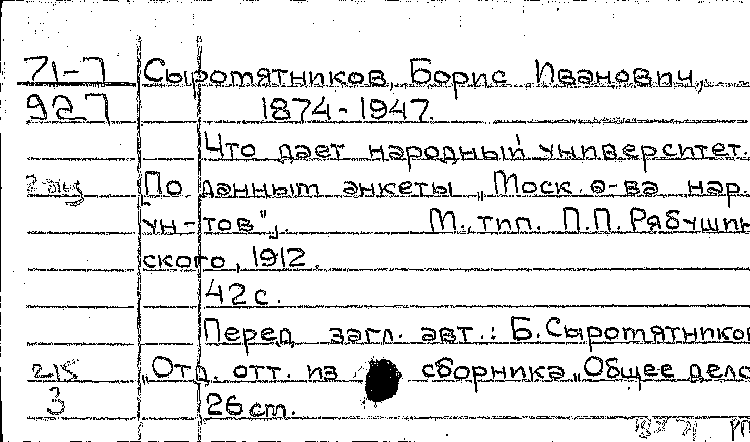 71-7 Сыромятников, Борис Иванович,
927 1874-1947.
Что дает народный университет.
2 экз [По данным анкеты „Моск. о-ва нар.
ун-тов"]. М., тип. П.П. Рябушин
ского, 1912.
42 с.
Перед загл. авт.: Б. Сыромятников
215 „Отд. отт. из сборника „Общее дело
3 26 см.